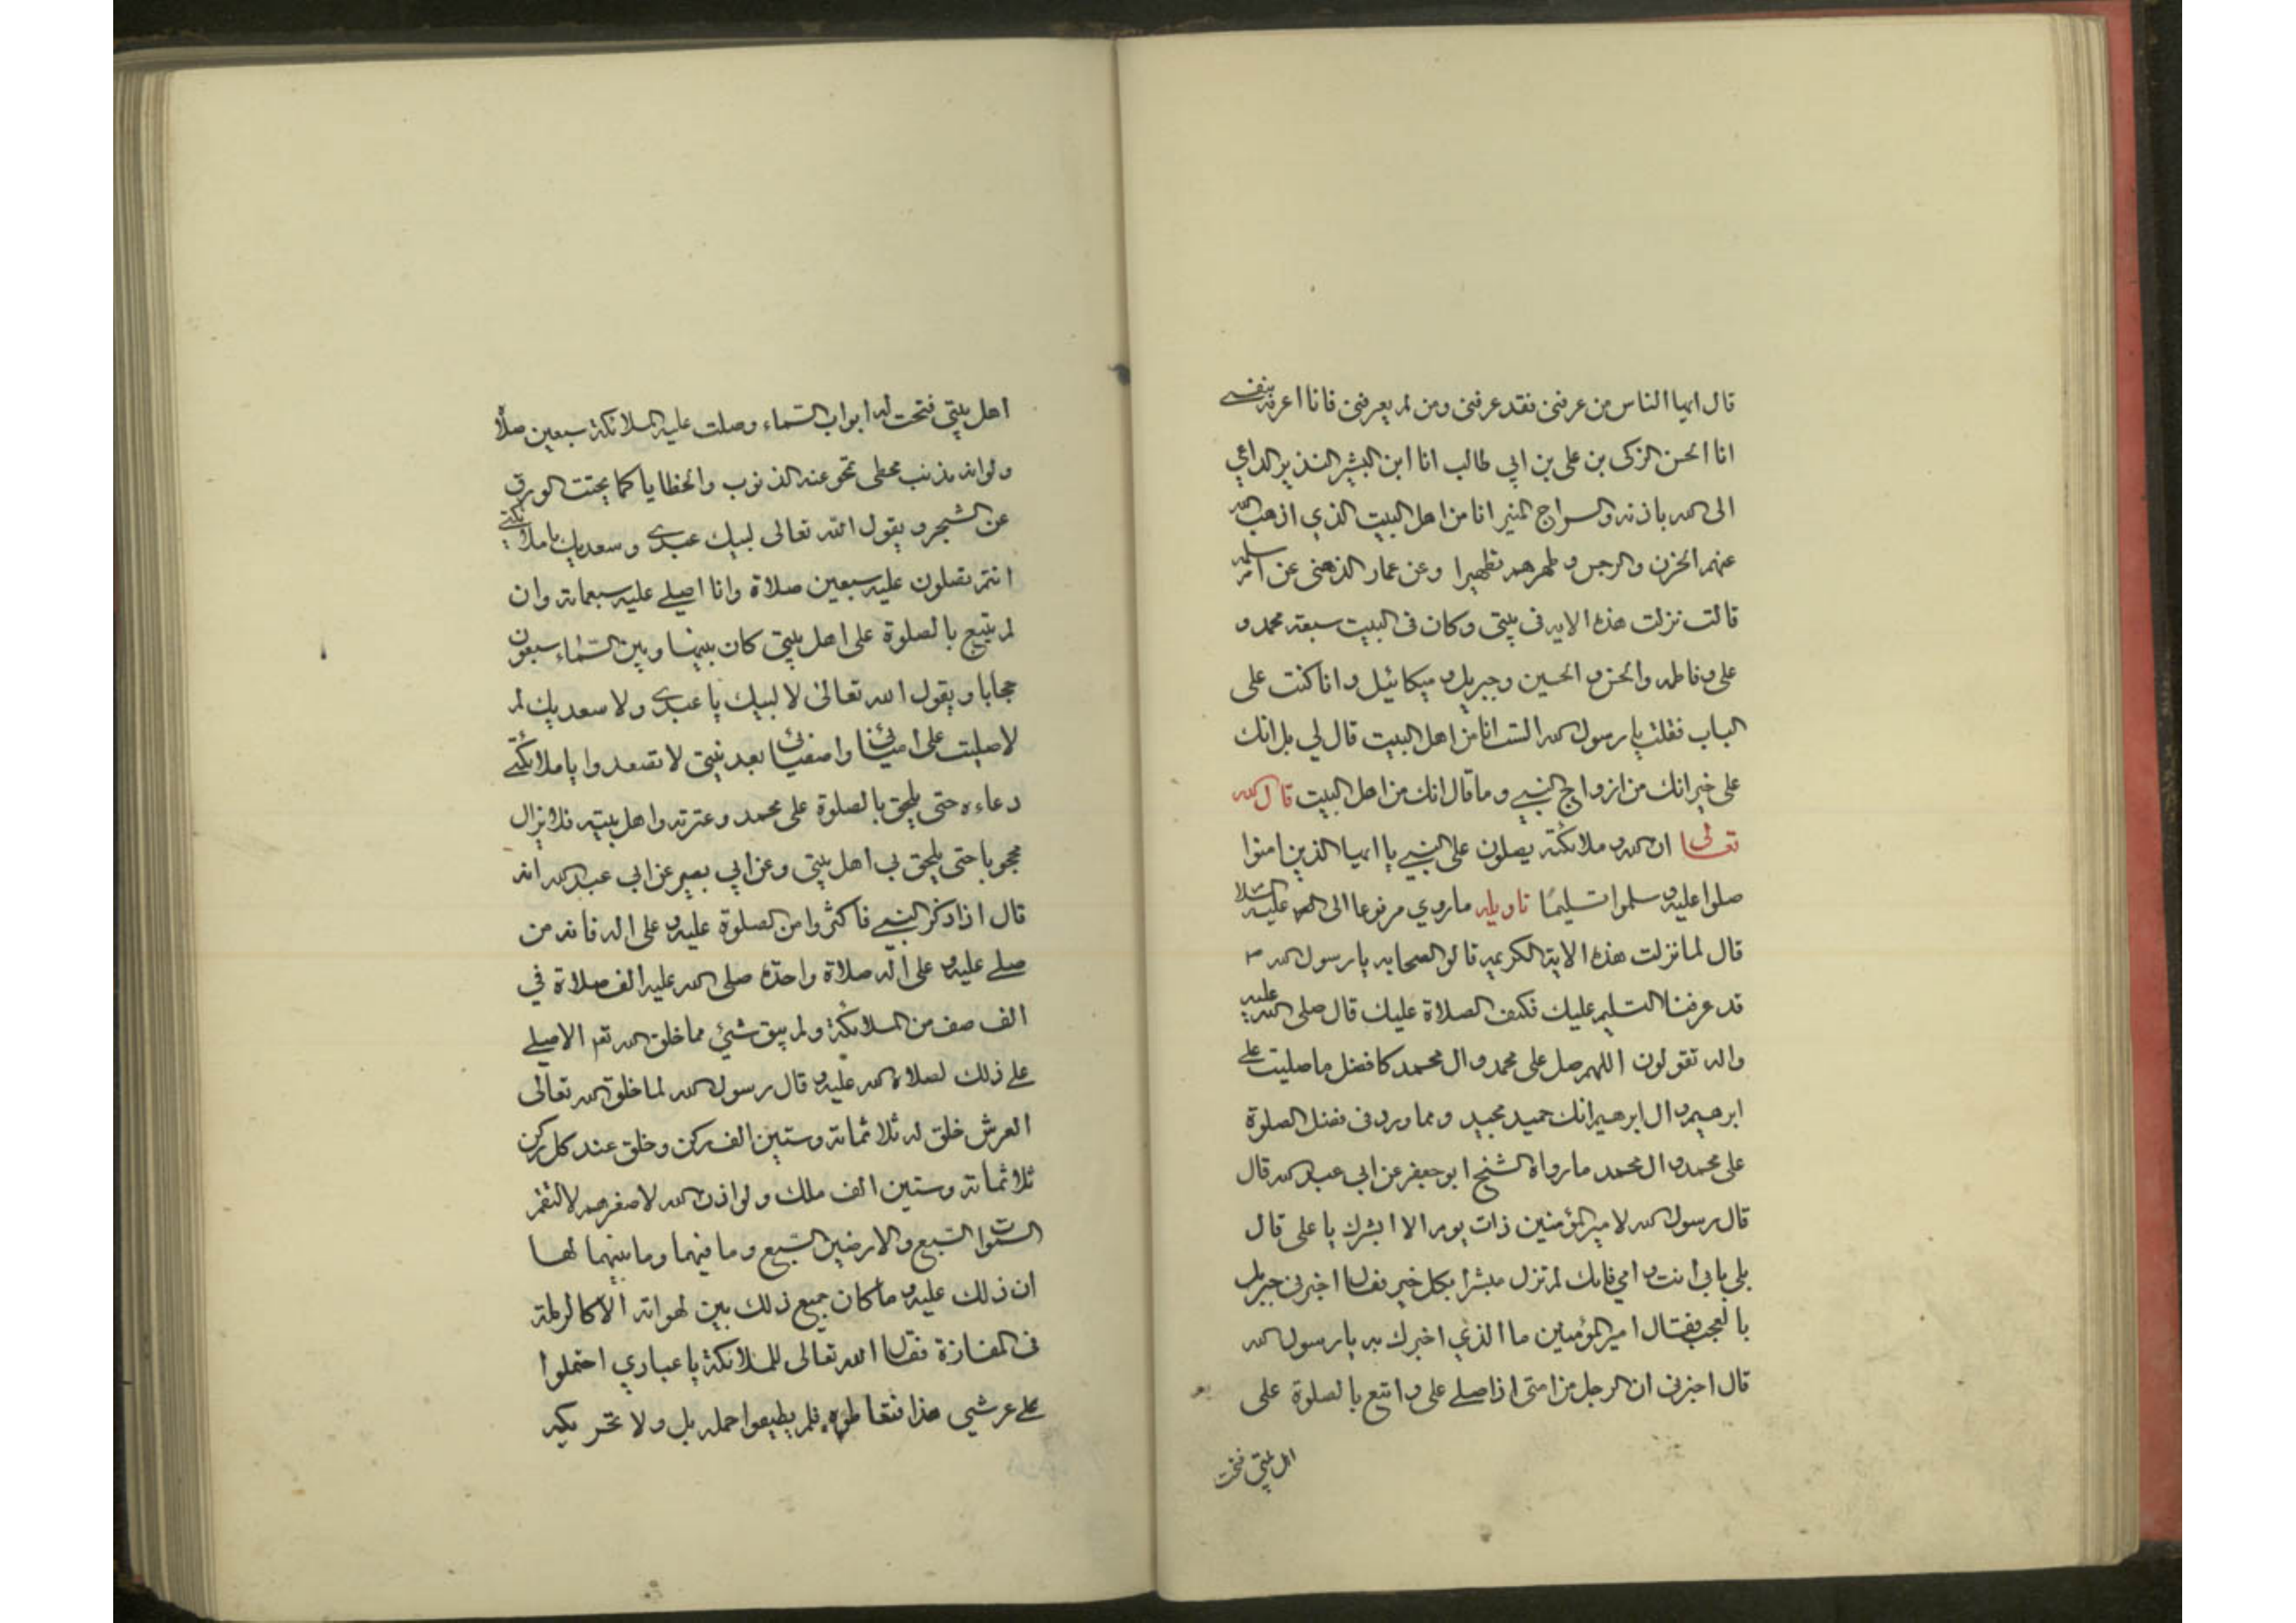 قال ايها الناس من عرفنى فقد عرفنى ومن لم يعرفنى فانا اعرفه بنفسي
انا الحسن الزكى بن على بن ابي طالب انا ابن البشير النذير الداعي
الى الله باذنه والسراج المنير انا من اهل البيت الذي اذهب الله
عنهم الحزن والرجس وطهرهم تطهيرا وعن عمار الذهنى عن ام سلمه
قالت نزلت هذه الايه فى بيتى وكان فى البيت سبعة محمد و
على وفاطمه والحسن والحسين وجبريل وميكائيل وانا كنت على
الباب فقلت يا رسول الله الست انا من اهل البيت قال لي بل انك
على خير انك من ازواج النبي وما قال انك من اهل البيت قال الله
تعالى ان الله وملائكته يصلون على النبي يا ايها الذين امنوا
صلوا عليه وسلموا تسليمًا تاويله ماروي مرفوعا الى عليه السلا
قال لما نزلت هذه الاية الكريمه قالو الصحابه يا رسول الله
قد عرفنا التسليم عليك فكيف الصلاة عليك قال صلى الله عليه
واله تقولون اللهم صل على محمد وال محمد كافضل ما صليت على
ابرهيم وال ابرهيم انك حميد مجيد ومما ورد فى فضل الصلوة
على محمد وال محمد مارواه الشيخ ابو جعفر عن ابي عبد الله قال
قال رسول الله لامير المؤمنين ذات يوم الا ابشرك يا على قال
بلى بابى انت وامي فانك لم تزل مبشرا بكل خير فقال اخبرنى جبريل
بالعجب فقال امير المؤمنين ما الذي اخبرك به يا رسول الله
قال اخبرنى ان الرجل من امتى اذا صلے على واتبع بالصلوة على
اهل بيتي فتحت
اهل بيتي فتحت له ابواب السماء وصلت عليه الملائكة سبعين صلاة
ولو انه مذنب مخطى تمحو عنه الذنوب والخطايا كما يحتت الورق
عن الشجر ويقول الله تعالى لبيك عبدي وسعديك يا ملائكتي
انتم تصلون عليه سبعين صلاة وانا اصلے عليه سبعمائة وان
لم يتبع بالصلوة على اهل بيتى كان بينها وبين السماء سبعون
حجابا ويقول الله تعالى لا لبيك يا عبدي ولا سعديك لم
لا صليت على وا بعد نبيى لا تصعدوا يا ملائكتي
دعاءه حتى يلحق بالصلوة على محمد وعترته واهل بيته فلا يزال
محجوبا حتى يلحق بي اهل بيتى وعن ابي بصير عن ابى عبد الله انه
قال اذا ذكر النبي فاكثروا من الصلوة عليه وعلى اله فانه من
صلے عليه وعلى اله صلاة واحدة صلى الله عليه الف صلاة في
الف صف من الملائكة ولم يبق شئي مما خلق الله تعم الا صلے
علے ذلك لصلاة الله عليه وقال رسول الله لما خلق الله تعالى
العرش خلق له ثلاثمائة وستين الف ركن وخلق عند كل ركن
ثلاثمائة وستين الف ملك ولو اذن الله لاصغرهم لالتقم
السموات السبع والارضين السبع وما فيهما وما بينهما لها
ان ذلك عليه وما كان جميع ذلك بين لهواته الا كالرملة
فى المفازة فقال الله تعالى للملائكة يا عبادي احتملوا
علے عرشي هذا فتعاطوه فلم يطيقوا حمله بل ولا تحريكه